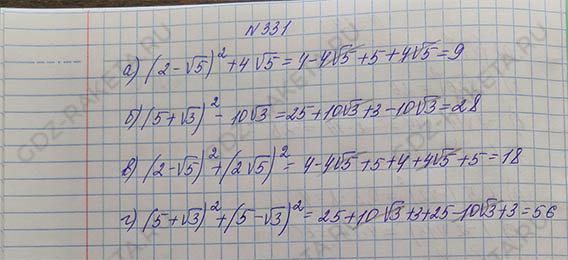 N331
а) (2-√5)² + 4√5 = 4-4√5+5+4√5=9
б) (5+√3)² - 10√3 = 25+10√3+3-10√3=28
в) (2-√5)² + (2√5)² = 4-4√5+5+4+4√5+5=18
г) (5+√3)² + (5-√3)² = 25+10√3+3+25-10√3+3=56
GDZ-RAKETA.RU